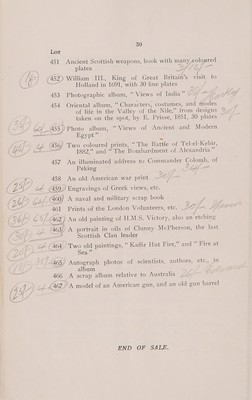 30
Lot
451 Ancient Scottish weapons, book with many coloured
plates
452 William III., King of Great Britain's visit to
Holland in 1691, with 30 fine plates
453 Photographic album, "Views of India"
454 Oriental album, "Characters, costumes, and modes
of life in the Valley of the Nile," from designs
taken on the spot, by E. Prisse, 1851, 30 plates
455 Photo album, "Views of Ancient and Modern
Egypt"
456 Two coloured prints, "The Battle of Tel-el-Kebir,
1882," and "The Bombardment of Alexandria"
457 An illuminated address to Commander Colomb, of
Peking
458 An old American war print
459 Engravings of Greek views, etc.
460 A naval and military scrap book
461 Prints of the London Volunteers, etc.
462 An old painting of H.M.S. Victory, also an etching
463 A portrait in oils of Clunny McPherson, the last
Scottish Clan leader
464 Two old paintings, "Kaffir Hut Fire," and "Fire at
Sea"
465 Autograph photos of scientists, authors, etc., in
album
466 A scrap album relative to Australia
467 A model of an American gun, and an old gun barrel
END OF SALE.